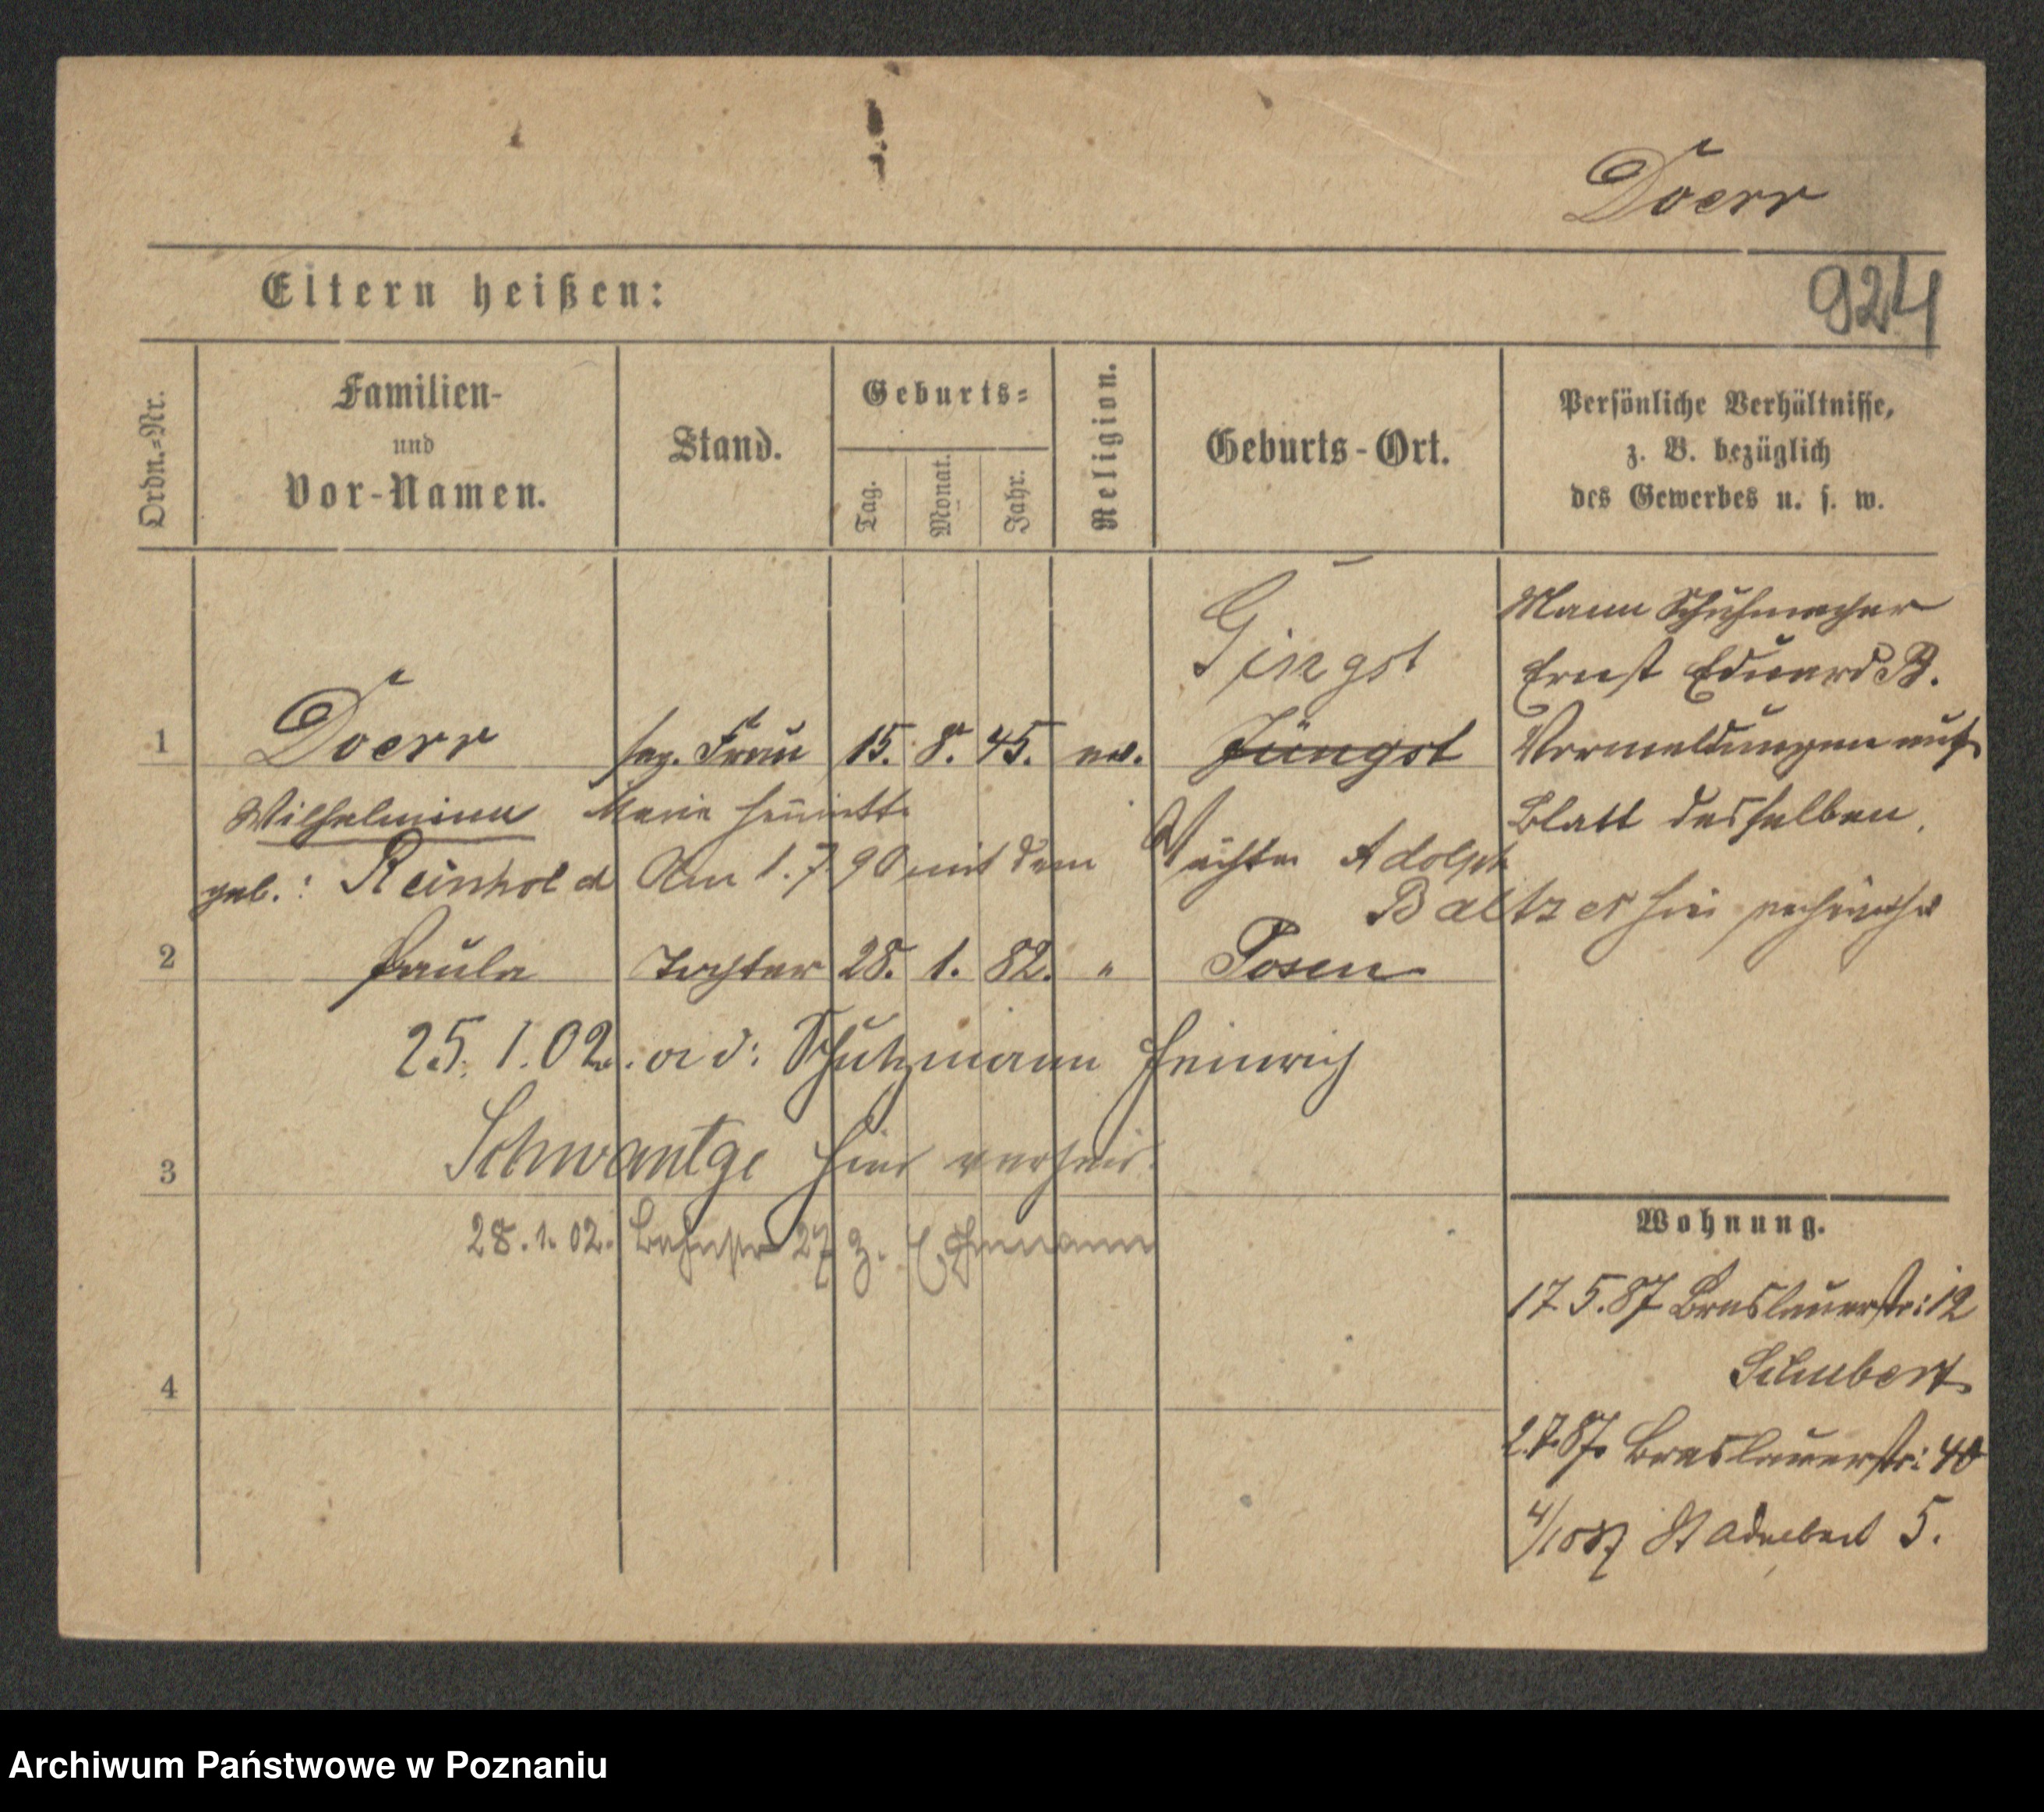 Doerr
924
Eltern heißen:
Ordn.-Nr.
Familien-
und
Vor-Namen.
Stand.
Geburts-
Tag.
Monat.
Jahr.
Religion.
Geburts-Ort.
Persönliche Verhältnisse,
z. B. bezüglich
des Gewerbes u. s. w.
Gingst
Mann Schuhmacher
Ernst Eduard
1 Doerr Frau 15. 8. 45. ev. Jüngst
Vermeldungen auf
Blatt desselben.
Wilhelmine Marie Henriette
geb.: Reinhold Am 1.7.90 mit dem Wächter Adolph
Baltzer hier
2 Paula Tochter 28. 1. 82. " Posen
25.1.02. a d: Schutzmann Heinrich
3 Schwantge hier verheir.
28.1.02. 27 z. Ehemann
4
Wohnung.
17.5.87 Breslauerstr: 12
Schubert
2.7.87. Breslauerstr: 40
4/10 87 St Adalbert 5.
Archiwum Państwowe w Poznaniu